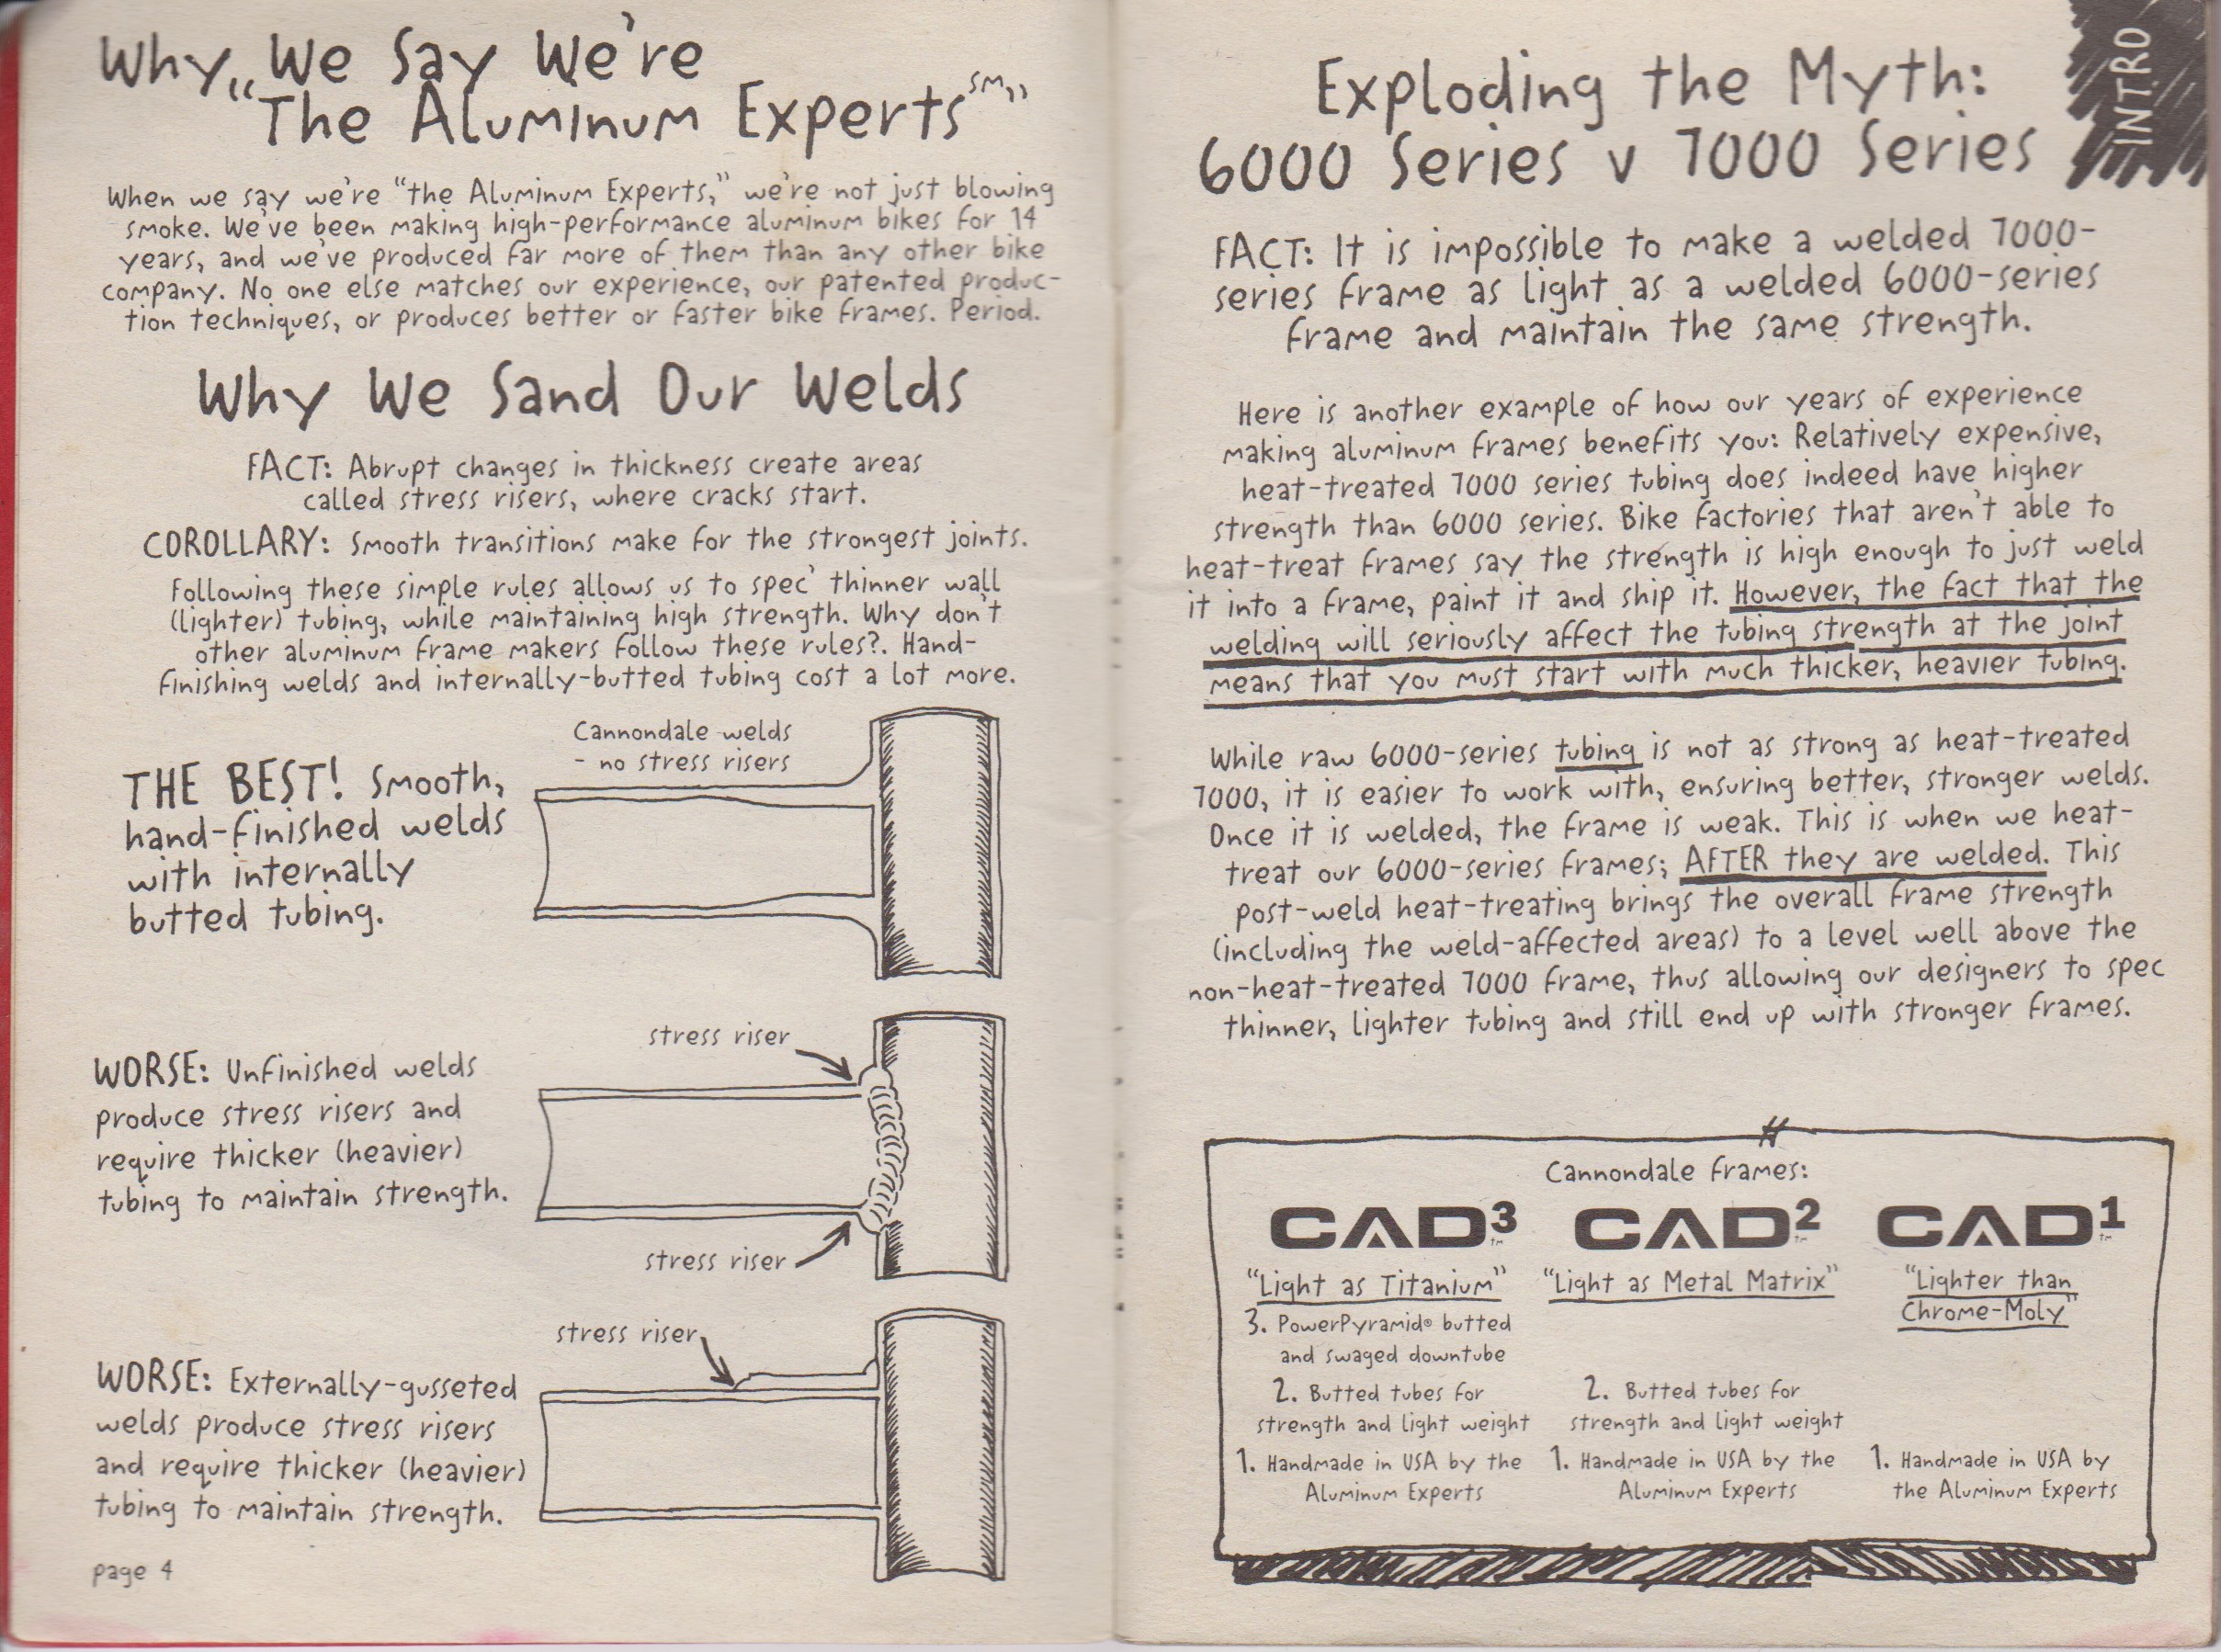 Why We Say We're
"The Aluminum Experts℠"
When we say we're "the Aluminum Experts," we're not just blowing
smoke. We've been making high-performance aluminum bikes for 14
years, and we've produced far more of them than any other bike
company. No one else matches our experience, our patented produc-
tion techniques, or produces better or faster bike frames. Period.
Why We Sand Our Welds
FACT: Abrupt changes in thickness create areas
called stress risers, where cracks start.
COROLLARY: Smooth transitions make for the strongest joints.
Following these simple rules allows us to spec' thinner wall
(lighter) tubing, while maintaining high strength. Why don't
other aluminum frame makers follow these rules?. Hand-
finishing welds and internally-butted tubing cost a lot more.
Cannondale welds
- no stress risers
THE BEST! Smooth,
hand-finished welds
with internally
butted tubing.
stress riser
WORSE: Unfinished welds
produce stress risers and
require thicker (heavier)
tubing to maintain strength.
stress riser
stress riser
WORSE: Externally-gusseted
welds produce stress risers
and require thicker (heavier)
tubing to maintain strength.
page 4
INTRO
Exploding the Myth:
6000 Series v 7000 Series
FACT: It is impossible to make a welded 7000-
series frame as light as a welded 6000-series
frame and maintain the same strength.
Here is another example of how our years of experience
making aluminum frames benefits you: Relatively expensive,
heat-treated 7000 series tubing does indeed have higher
strength than 6000 series. Bike factories that aren't able to
heat-treat frames say the strength is high enough to just weld
it into a frame, paint it and ship it. However, the fact that the
welding will seriously affect the tubing strength at the joint
means that you must start with much thicker, heavier tubing.
While raw 6000-series tubing is not as strong as heat-treated
7000, it is easier to work with, ensuring better, stronger welds.
Once it is welded, the frame is weak. This is when we heat-
treat our 6000-series frames; AFTER they are welded. This
post-weld heat-treating brings the overall frame strength
(including the weld-affected areas) to a level well above the
non-heat-treated 7000 frame, thus allowing our designers to spec
thinner, lighter tubing and still end up with stronger frames.
Cannondale frames:
CAD3™ CAD2™ CAD1™
"Light as Titanium"
3. PowerPyramid® butted
and swaged downtube
2. Butted tubes for
strength and light weight
1. Handmade in USA by the
Aluminum Experts
"Light as Metal Matrix"
2. Butted tubes for
strength and light weight
1. Handmade in USA by the
Aluminum Experts
"Lighter than
Chrome-Moly"
1. Handmade in USA by
the Aluminum Experts